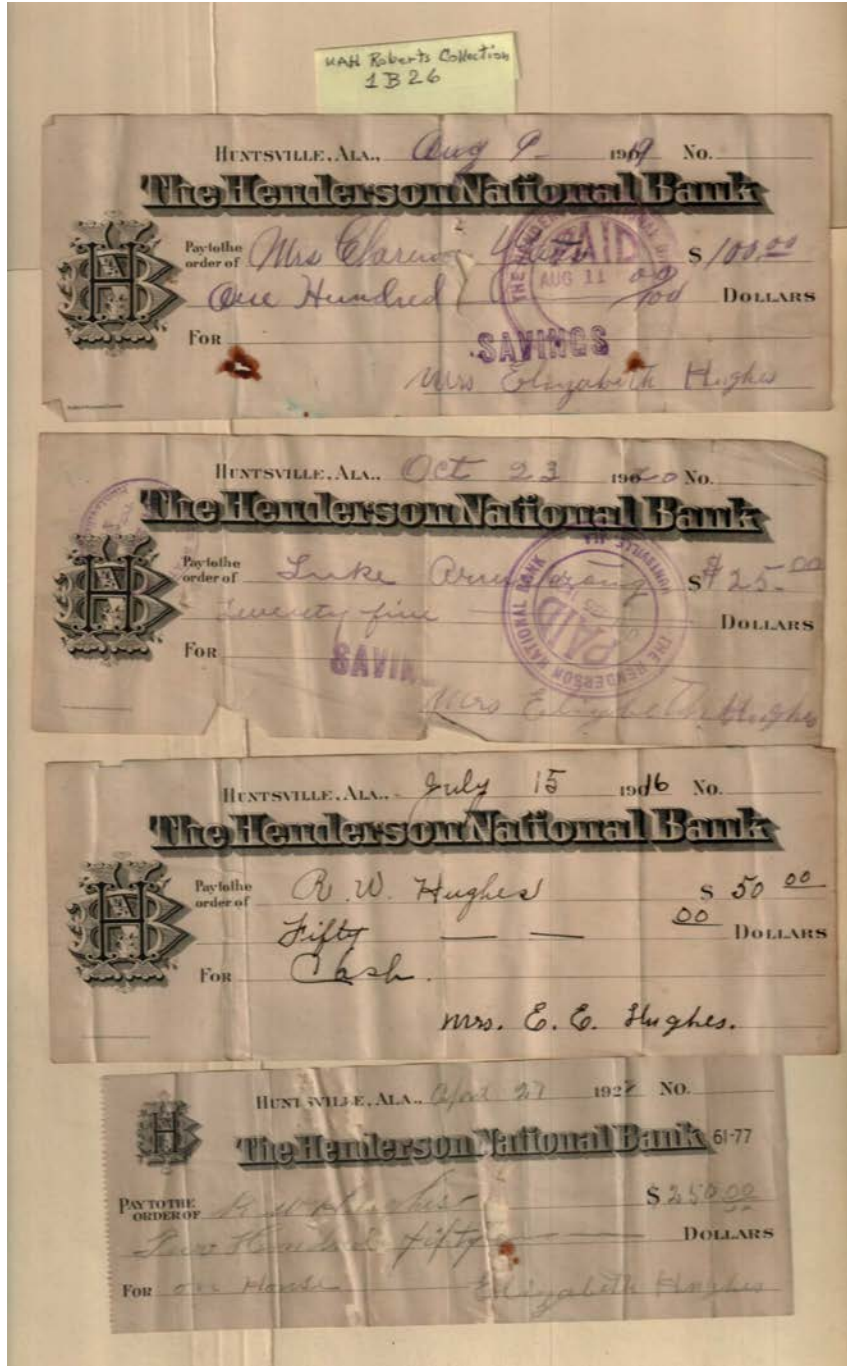 UAH Roberts Collection
1B26
HUNTSVILLE, ALA., Aug 9 - 1919 No.
The Henderson National Bank
Pay to the order of Mrs Clarence $ 100.00
One Hundred 00/100 DOLLARS
FOR
THE HENDERSON NATIONAL BANK PAID AUG 11
SAVINGS
Mrs Elizabeth Hughes
HUNTSVILLE, ALA., Oct 23 1920 No.
The Henderson National Bank
Pay to the order of Luke Armstrong $ $25.00
Twenty five DOLLARS
FOR
THE HENDERSON NATIONAL BANK HUNTSVILLE ALA PAID
SAVIN
Mrs Elizabeth Hughes
HUNTSVILLE, ALA., July 15 1916 No.
The Henderson National Bank
Pay to the order of R. W. Hughes $ 50 00
Fifty — — 00 DOLLARS
FOR Cash.
Mrs. E. E. Hughes.
HUNTSVILLE, ALA., April 27 192 No.
The Henderson National Bank 61-77
PAY TO THE ORDER OF R W Hughes $ 250.00
Two Hundred fifty DOLLARS
FOR on House Elizabeth Hughes